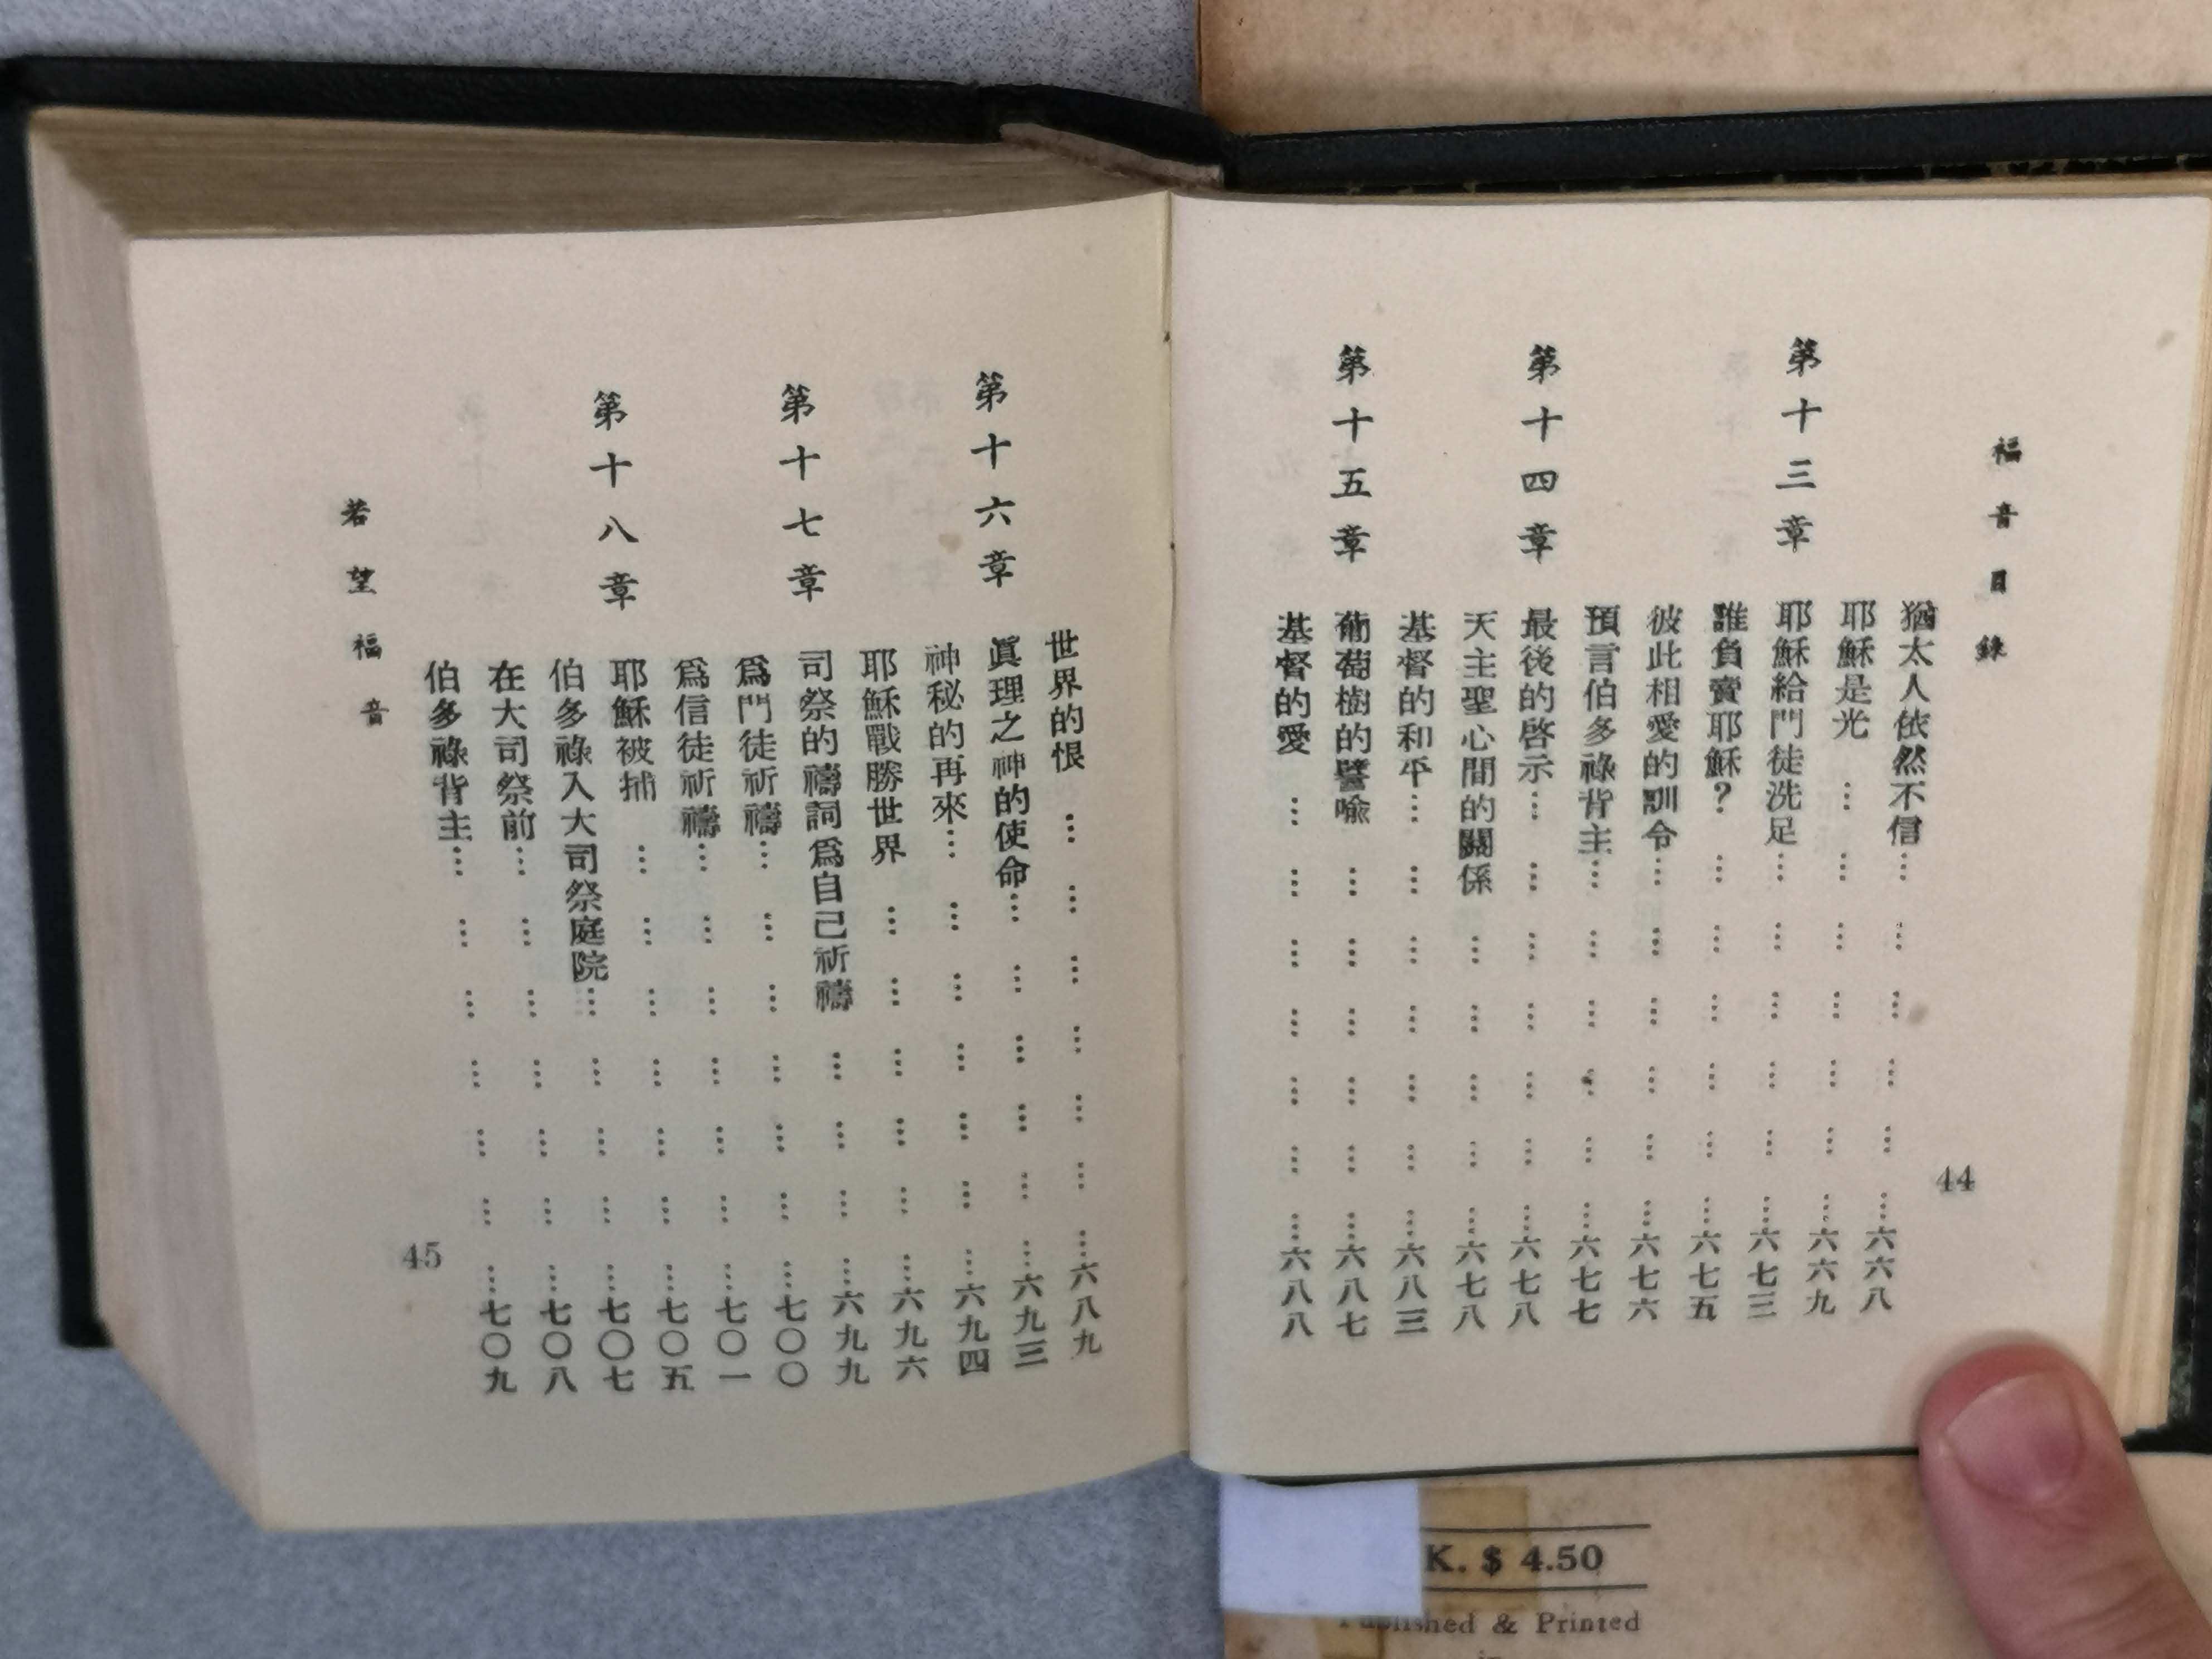 福音目錄
猶太人依然不信……………………六六八
耶穌是光……………………六六九
第十三章
耶穌給門徒洗足……………………六七三
誰負賣耶穌?……………………六七五
彼此相愛的訓令……………………六七六
預言伯多祿背主……………………六七七
第十四章
最後的啓示……………………六七八
天主聖心間的關係……………………六七八
基督的和平……………………六八三
第十五章
葡萄樹的譬喻……………………六八七
基督的愛……………………六八八
44
世界的恨……………………六八九
第十六章
眞理之神的使命……………………六九三
神秘的再來……………………六九四
耶穌戰勝世界……………………六九六
第十七章
司祭的禱詞爲自己祈禱……………………六九九
爲門徒祈禱……………………七〇〇
爲信徒祈禱……………………七〇一
第十八章
耶穌被捕……………………七〇五
伯多祿入大司祭庭院……………………七〇七
在大司祭前……………………七〇八
伯多祿背主……………………七〇九
若望福音
45
K. $ 4.50
Published & Printed
in